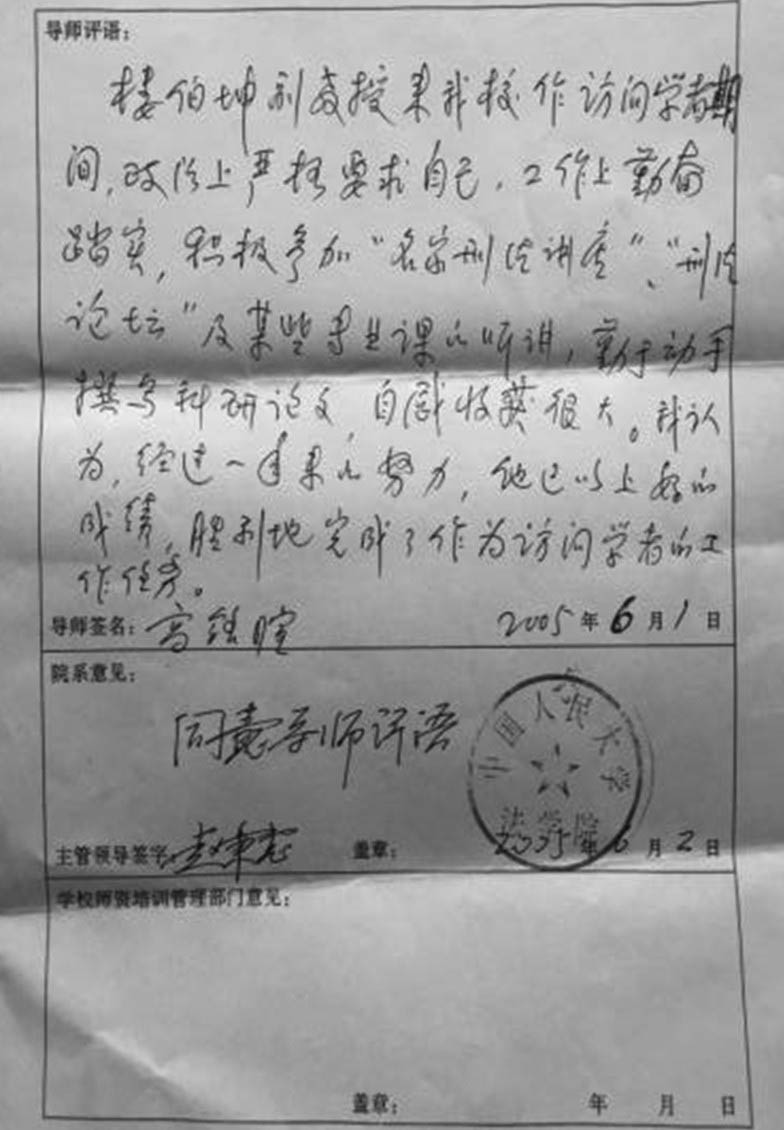 导师评语：
楼伯坤副教授来我校作访问学者期
间，政治上严格要求自己，工作上勤奋
踏实，积极参加“名家刑法讲座”、“刑法
论坛”及某些专业课的听讲，勤于动手
撰写科研论文，自感收获很大。我认
为，经过一年来的努力，他已以上好的
成绩，胜利地完成了作为访问学者的工
作任务。
导师签名：高铭暄 2005年6月1日
院系意见：
同意导师评语
中国人民大学
法学院
主管领导签字：赵秉志 盖章： 2005年6月2日
学校师资培训管理部门意见：
盖章： 年 月 日